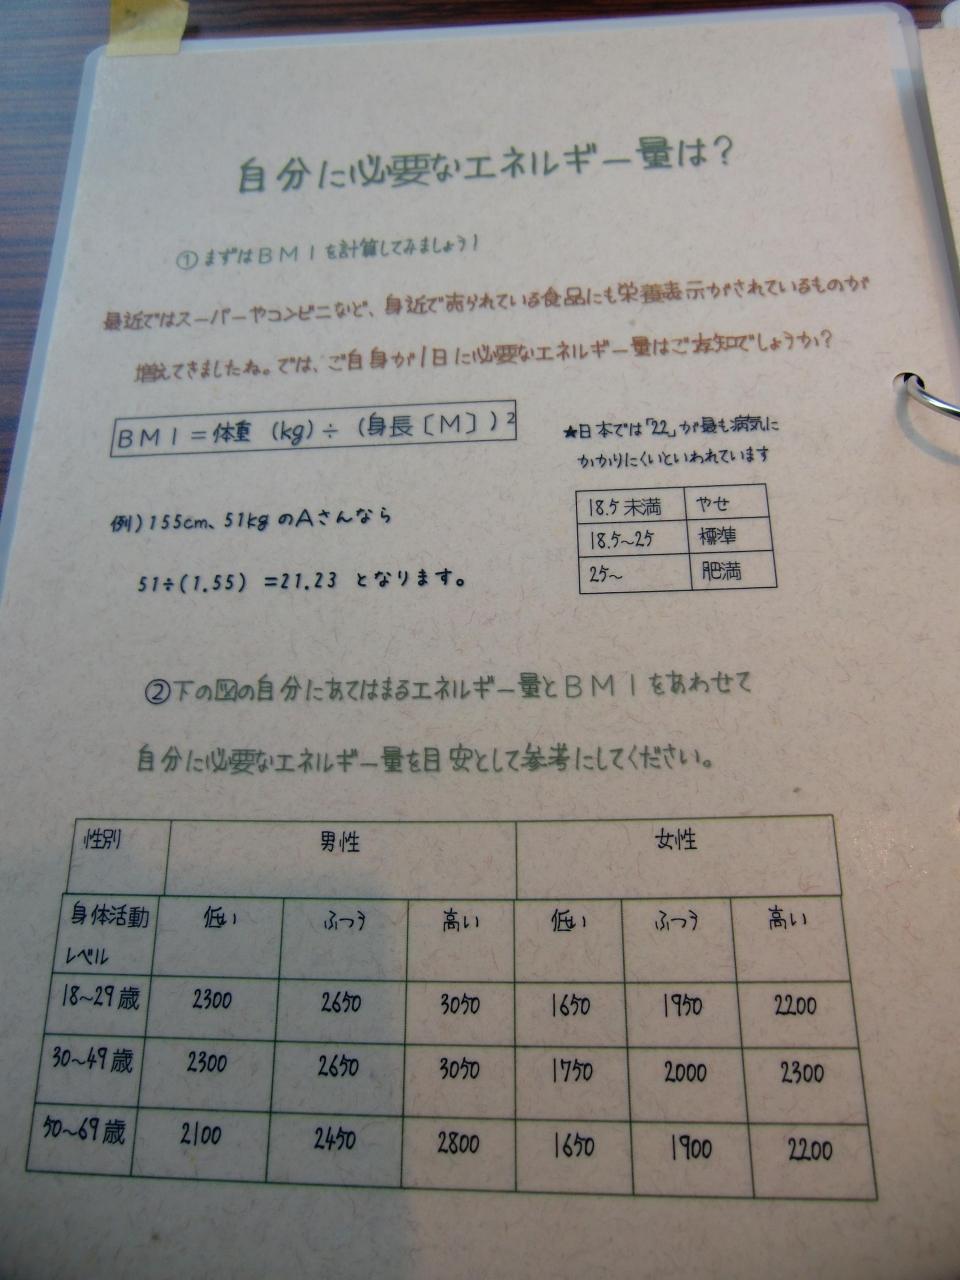 自分に必要なエネルギー量は?
①まずはBMIを計算してみましょう!
最近ではスーパーやコンビニなど、身近で売られている食品にも栄養表示がされているものが
増えてきましたね。では、ご自身が1日に必要なエネルギー量はご存知でしょうか?
BMI=体重 (kg)÷(身長〔M〕)²
★日本では「22」が最も病気に
かかりにくいといわれています
18.5未満 やせ
18.5~25 標準
25~ 肥満
例)155cm、51kgのAさんなら
51÷(1.55) =21.23 となります。
②下の図の自分にあてはまるエネルギー量とBMIをあわせて
自分に必要なエネルギー量を目安として参考にしてください。
性別 男性 女性
身体活動 低い ふつう 高い 低い ふつう 高い
レベル
18~29歳 2300 2650 3050 1650 1950 2200
30~49歳 2300 2650 3050 1750 2000 2300
50~69歳 2100 2450 2800 1650 1900 2200